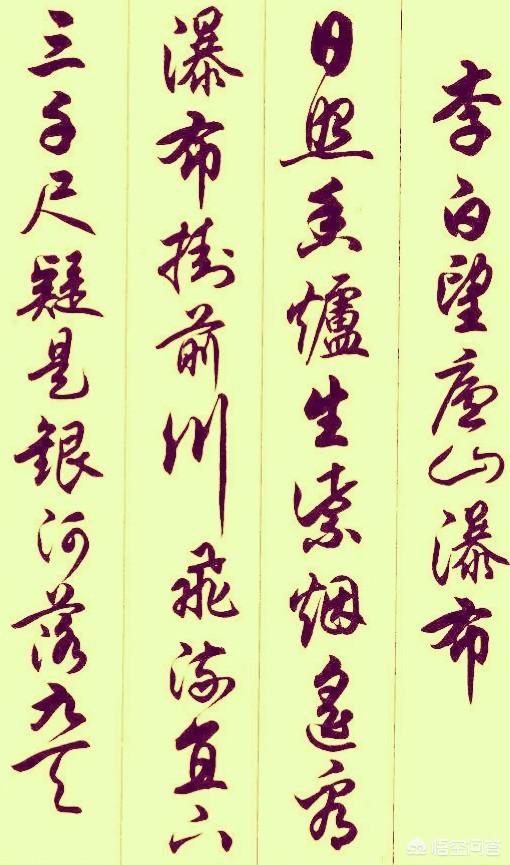 李白望廬山瀑布
日照香爐生紫烟遙看
瀑布掛前川飛流直下
三千尺疑是銀河落九天
悟空问答